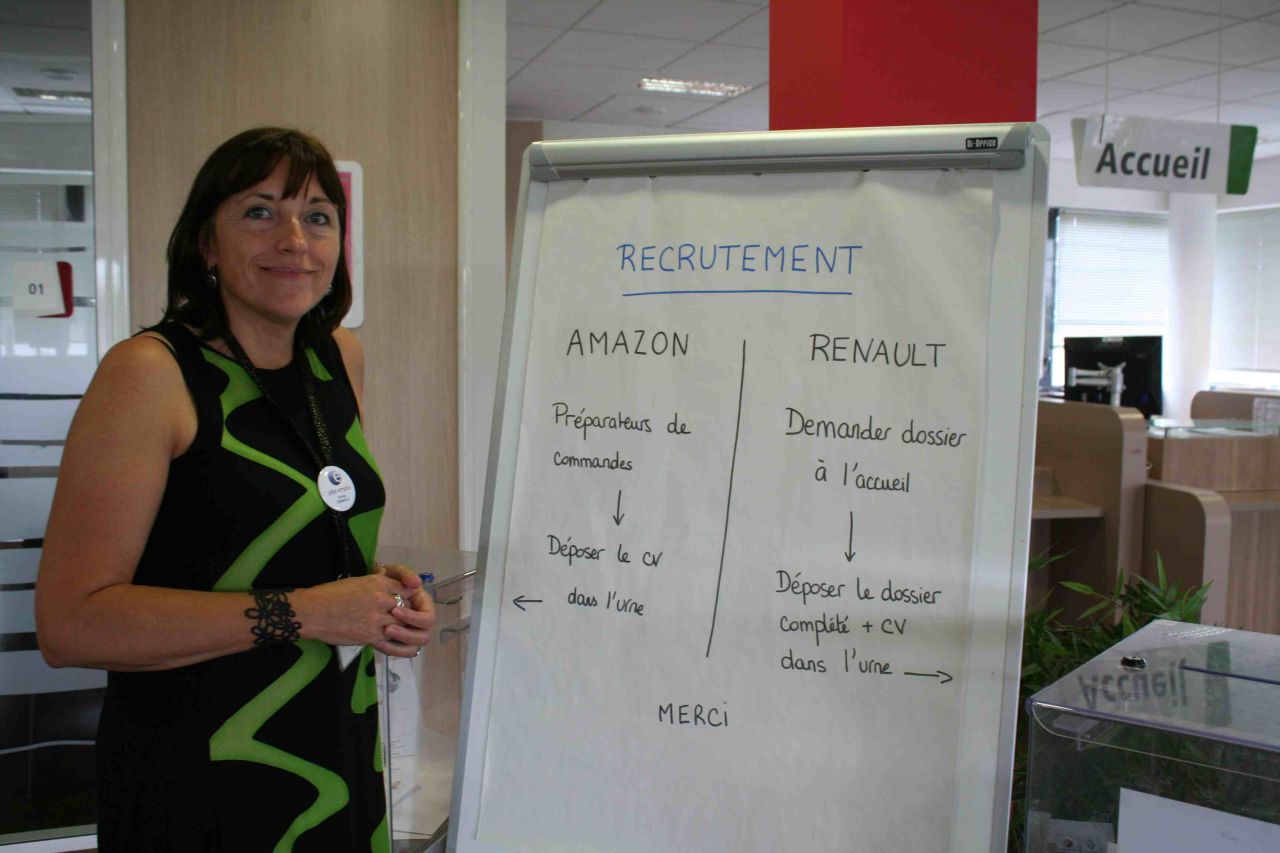 01
Bi-Office
Accueil
RECRUTEMENT
AMAZON
Préparateurs de
commandes
↓
Déposer le CV
← dans l'urne
RENAULT
Demander dossier
à l'accueil
↓
Déposer le dossier
complété + CV
dans l'urne →
MERCi
pôle emploi
Accueil